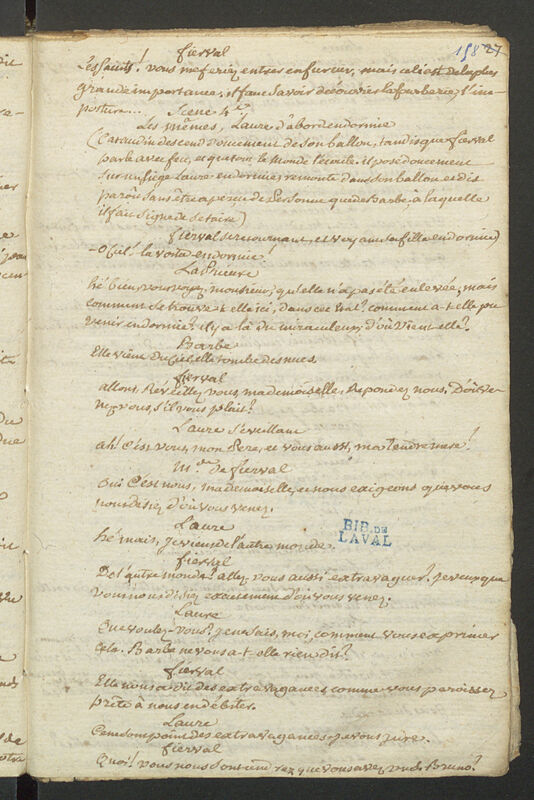 158 27
fierval
Les Sauts! vous me feriez entrer en fureur, mais cela est de la plus
grande importance, il faut savoir découvrir la fourberie, l'im-
posture...
Scene 4.e
Les mêmes, Laure d'abord endormie
(Carandin descend doucement de son ballon, tandis que fierval
parle avec feu, et que tout le monde l'écoute. il pose doucement
sur un siège Laure endormie, remonte dans son ballon et dis
paroît sans être apercu de personne que de Barbe, à laquelle
il fait signe de se taire)
fierval se retournant, et voyant sa fille endormie)
O Ciel! la voilà endormie!
La Prieure
hé bien, vous voyez, monsieur, qu'elle n'a pas été enlevée, mais
comment se trouve-t-elle ici, dans cet état? comment a-t-elle pu
venir endormie? il y a là du miraculeux; d'où vient-elle?
Barbe
Elle vient du Ciel elle tombe des nues.
fierval
allons, Réveillez-vous, mademoiselle, Répondez nous. D'où ve-
nez vous, s'il vous plait?
Laure s'éveillant
ah! C'est vous, mon Pere, et vous aussi, ma tendre mere!
M.de de fierval
Oui C'est nous, mademoiselle, et nous exigeons que vous
nous disiez d'où vous venez.
Laure
hé mais, je viens de l'autre monde.
BIB. DE
LAVAL
fierval
De l'autre monde! allez vous aussi extravaguer? je veux que
vous nous disiez exactement d'où vous venez.
Laure
Que voulez-vous? je ne sais, moi, comment vous exprimer
cela. Barbe ne vous a-t-elle rien dit?
fierval
Elle nous a dit des extravagances comme vous paroissez
prête à nous en débiter.
Laure
Ce ne sont point des extravagances, je vous jure.
fierval
Quoi! vous nous soutiendrez que vous avez vu d. Bruno?